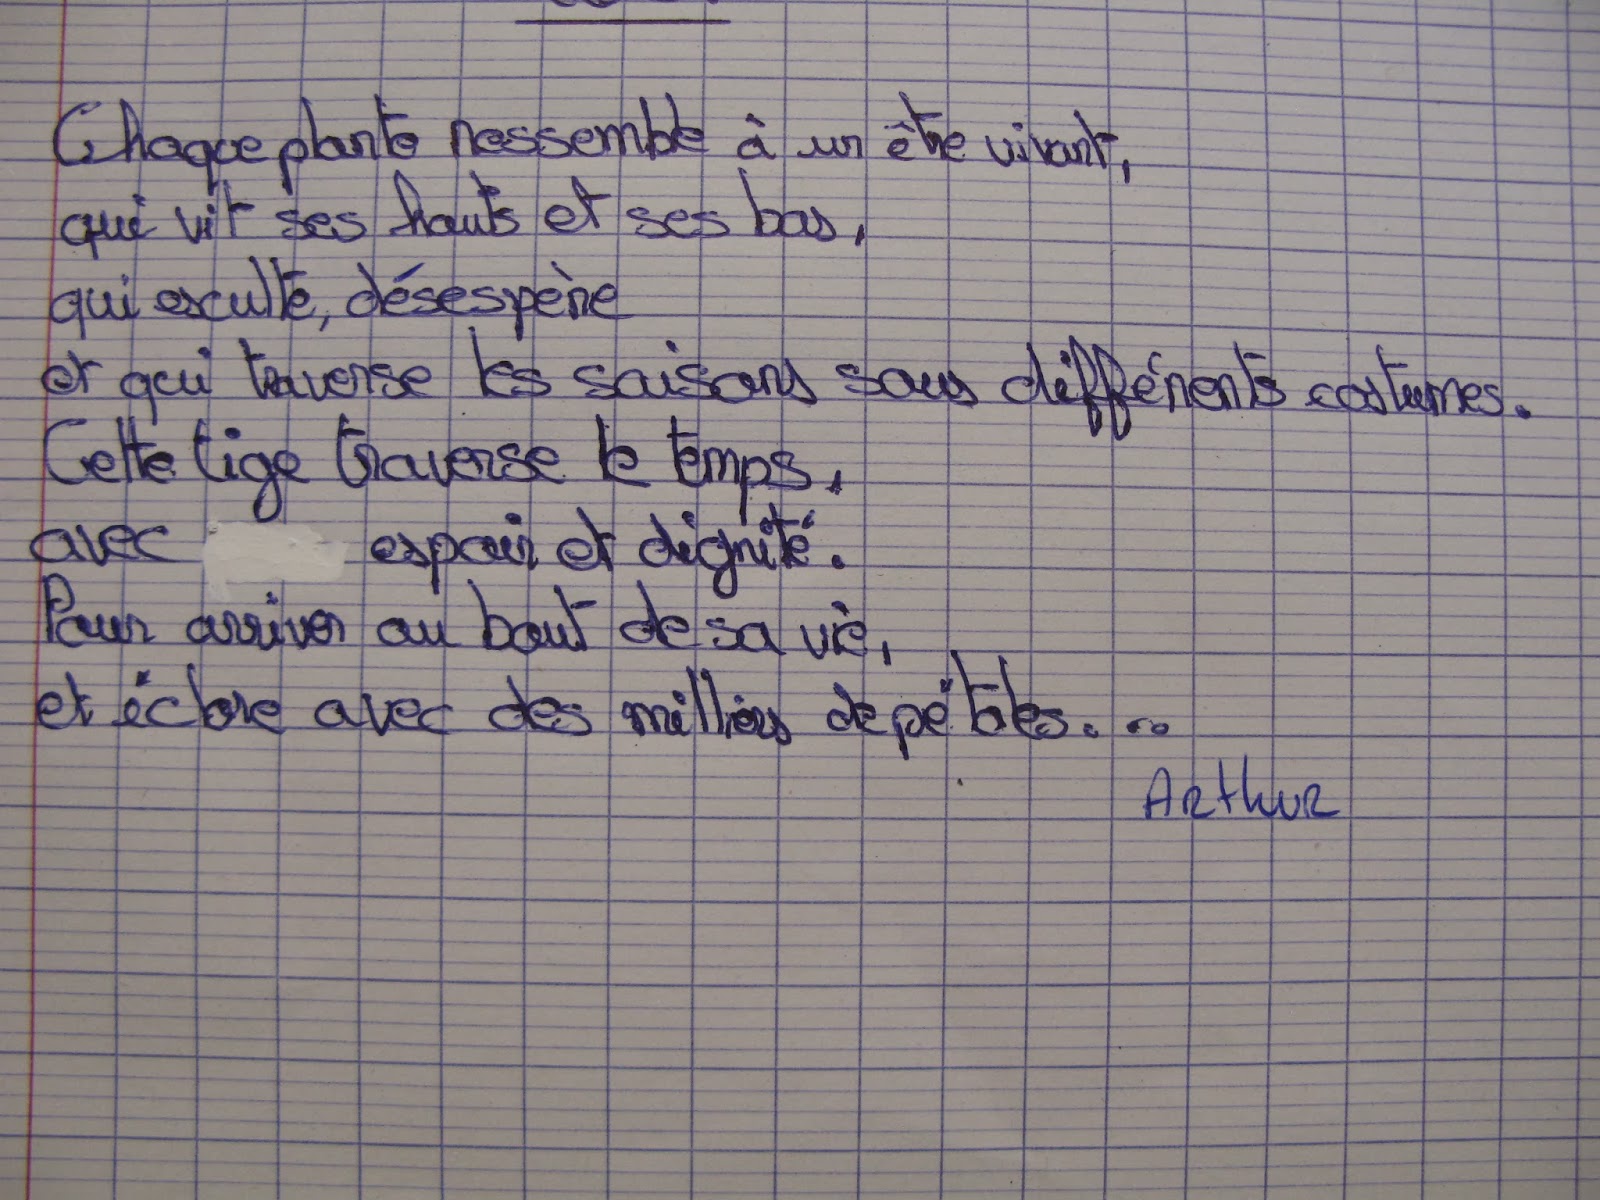 Chaque plante ressemble à un être vivant,
qui vit ses hauts et ses bas,
qui exculte, désespère
et qui traverse les saisons sous différents costumes.
Cette tige traverse le temps,
avec espoir et dignité.
Pour arriver au bout de sa vie,
et éclore avec des milliers de pétales...
Arthur